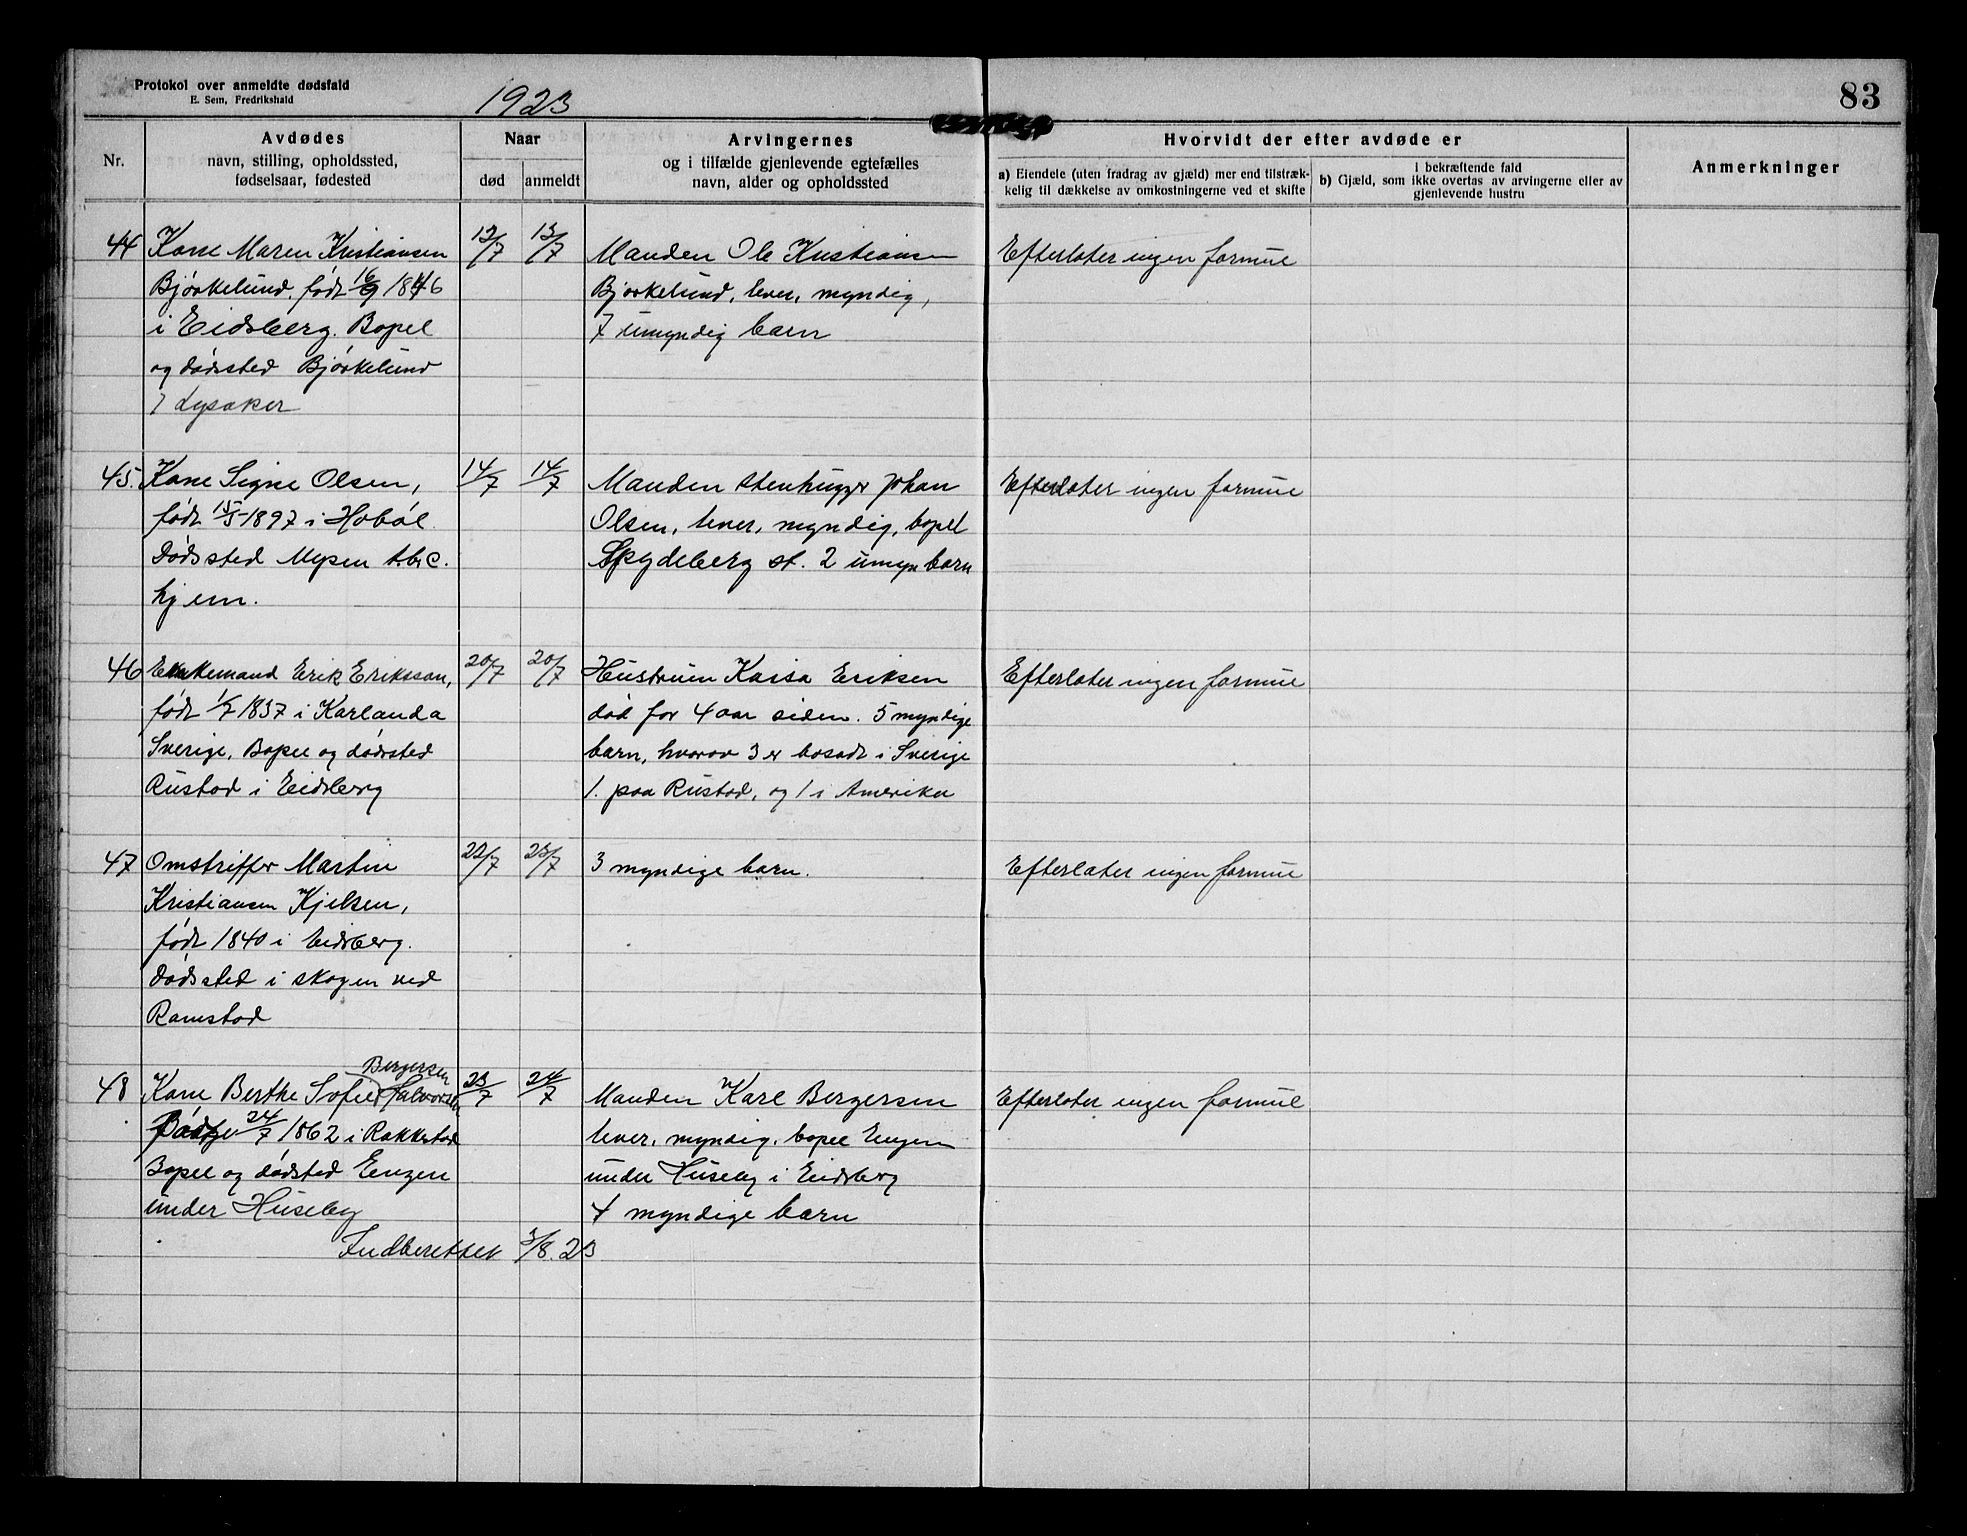 Protokol over anmeldte dødsfald
E. Sem, Fredrikshald
1923
83
Nr.
Avdødes
navn, stilling, opholdssted,
fødselsaar, fødested
Naar
død
anmeldt
Arvingernes
og i tilfælde gjenlevende egtefælles
navn, alder og opholdssted
Hvorvidt der efter avdøde er
a) Eiendele (uten fradrag av gjæld) mer end tilstræk-
kelig til dækkelse av omkostningerne ved et skifte
i bekræftende fald
b) Gjæld, som ikke overtas av arvingerne eller av
gjenlevende hustru
Anmerkninger
44
Kone Maren Kristiansen
Bjørkelund, født 16/9 1846
i Eidsberg. Bopel
og dødssted Bjørkelund
/ Lysaker
12/7
13/7
Manden Ole Kristiansen
Bjørkelund, lever, myndig,
7 umyndig barn
Efterlater ingen formue
45.
Kone Signe Olsen,
født 15/5 1897 i Hobøl
Dødssted Mysen tbc.
hjem.
14/7
14/7
Manden stenhugger Johan
Olsen, lever, myndig, bopel
Spydeberg st. 2 umyn barn
Efterlater ingen formue
46
Enkemand Erik Eriksson,
født 1/7 1837 i Karlanda
Sverige, Bopel og dødssted
Rustad i Eidsberg
20/7
20/7
Hustruen Kaisa Eriksen
død for 4 aar siden. 5 myndige
barn, hvorav 3 er bosadt i Sverige
1. paa Rustad, og 1 i Amerika
Efterlater ingen formue
47
Omstriffer Martin
Kristiansen Kjelsen,
født 1840 i Eidsberg.
Dødssted i skogen ved
Ramstad
22/7
23/7
3 myndige barn.
Efterlater ingen formue
48
Bergersen
Kone Berthe Sofie Halvorsen
24/7 1862 i Rakkestad
Bopel og dødsted Engen
under Huseby
23/7
24/7
Manden Karl Bergersen
lever, myndig, bopel Engen
under Huseby i Eidsberg
4 myndige barn
Efterlater ingen formue
Indberettet 3/8.23